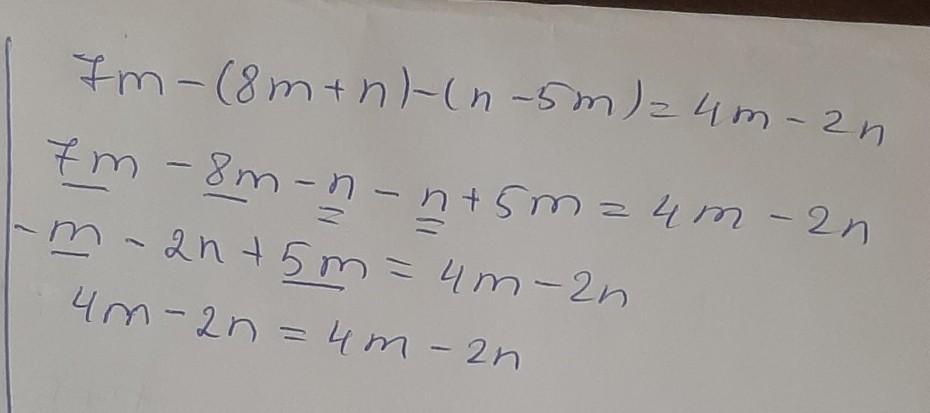 7m-(8m+n)-(n-5m)=4m-2n
7m-8m-n-n+5m=4m-2n
-m-2n+5m=4m-2n
4m-2n=4m-2n